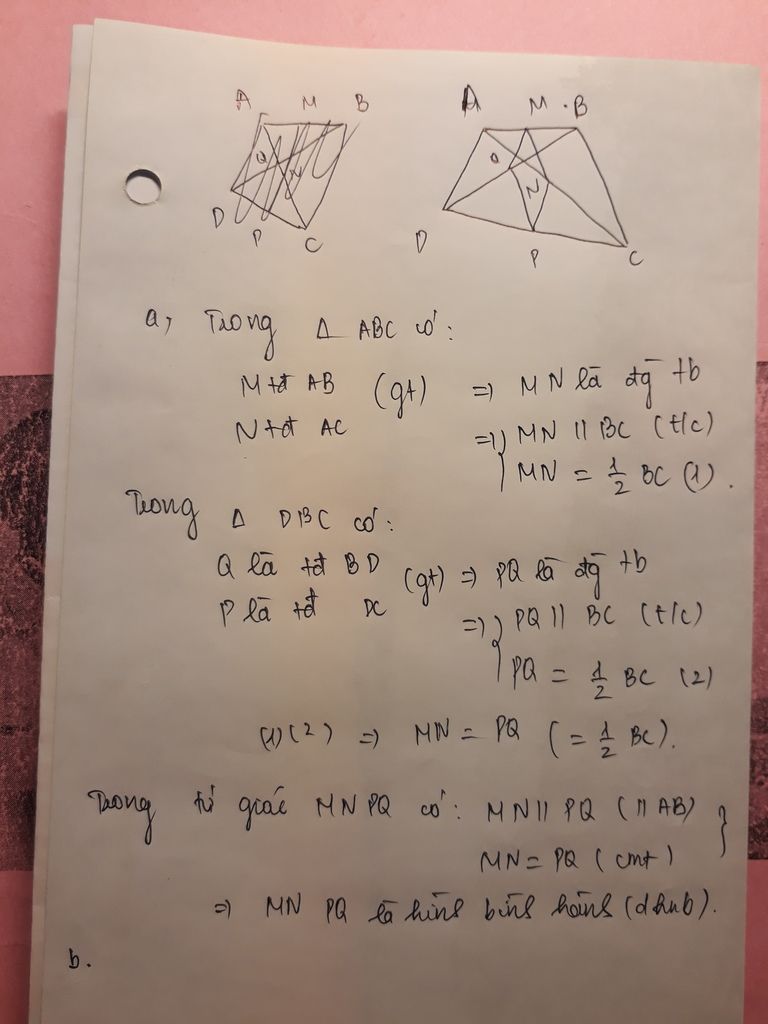 A M B
Q N
D P C
A M . B
Q N
D P C
a, Trong Δ ABC có:
M tđ AB (gt) => MN là đg tb
N tđ AC => { MN // BC (t/c)
MN = 1/2 BC (1).
Trong Δ DBC có:
Q là tđ BD (gt) => PQ là đg tb
P là tđ DC => { PQ // BC (t/c)
PQ = 1/2 BC (2)
(1)(2) => MN = PQ (= 1/2 BC).
Trong tứ giác MNPQ có: MN // PQ (// AB) }
MN = PQ (cmt)
=> MN PQ là hình bình hành (dhnb).
b.